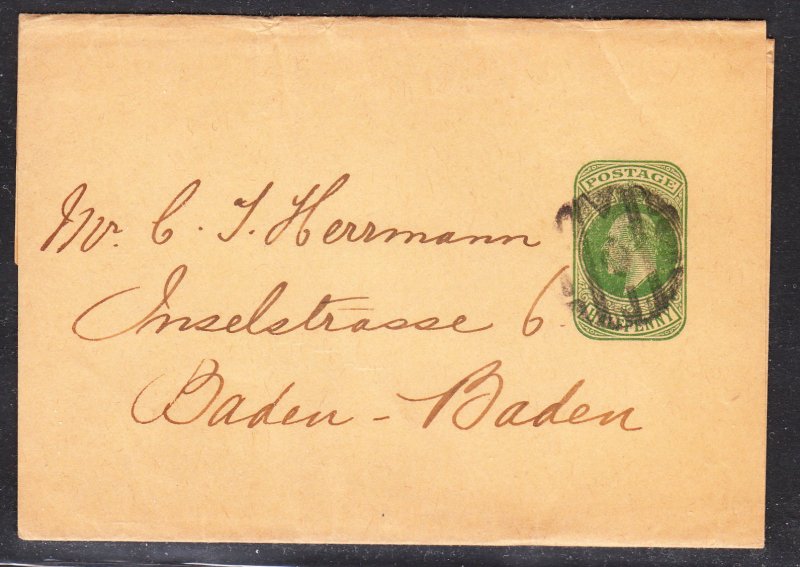 Mr. C. J. Herrmann
Inselstrasse 6.
Baden-Baden
POSTAGE
HALFPENNY